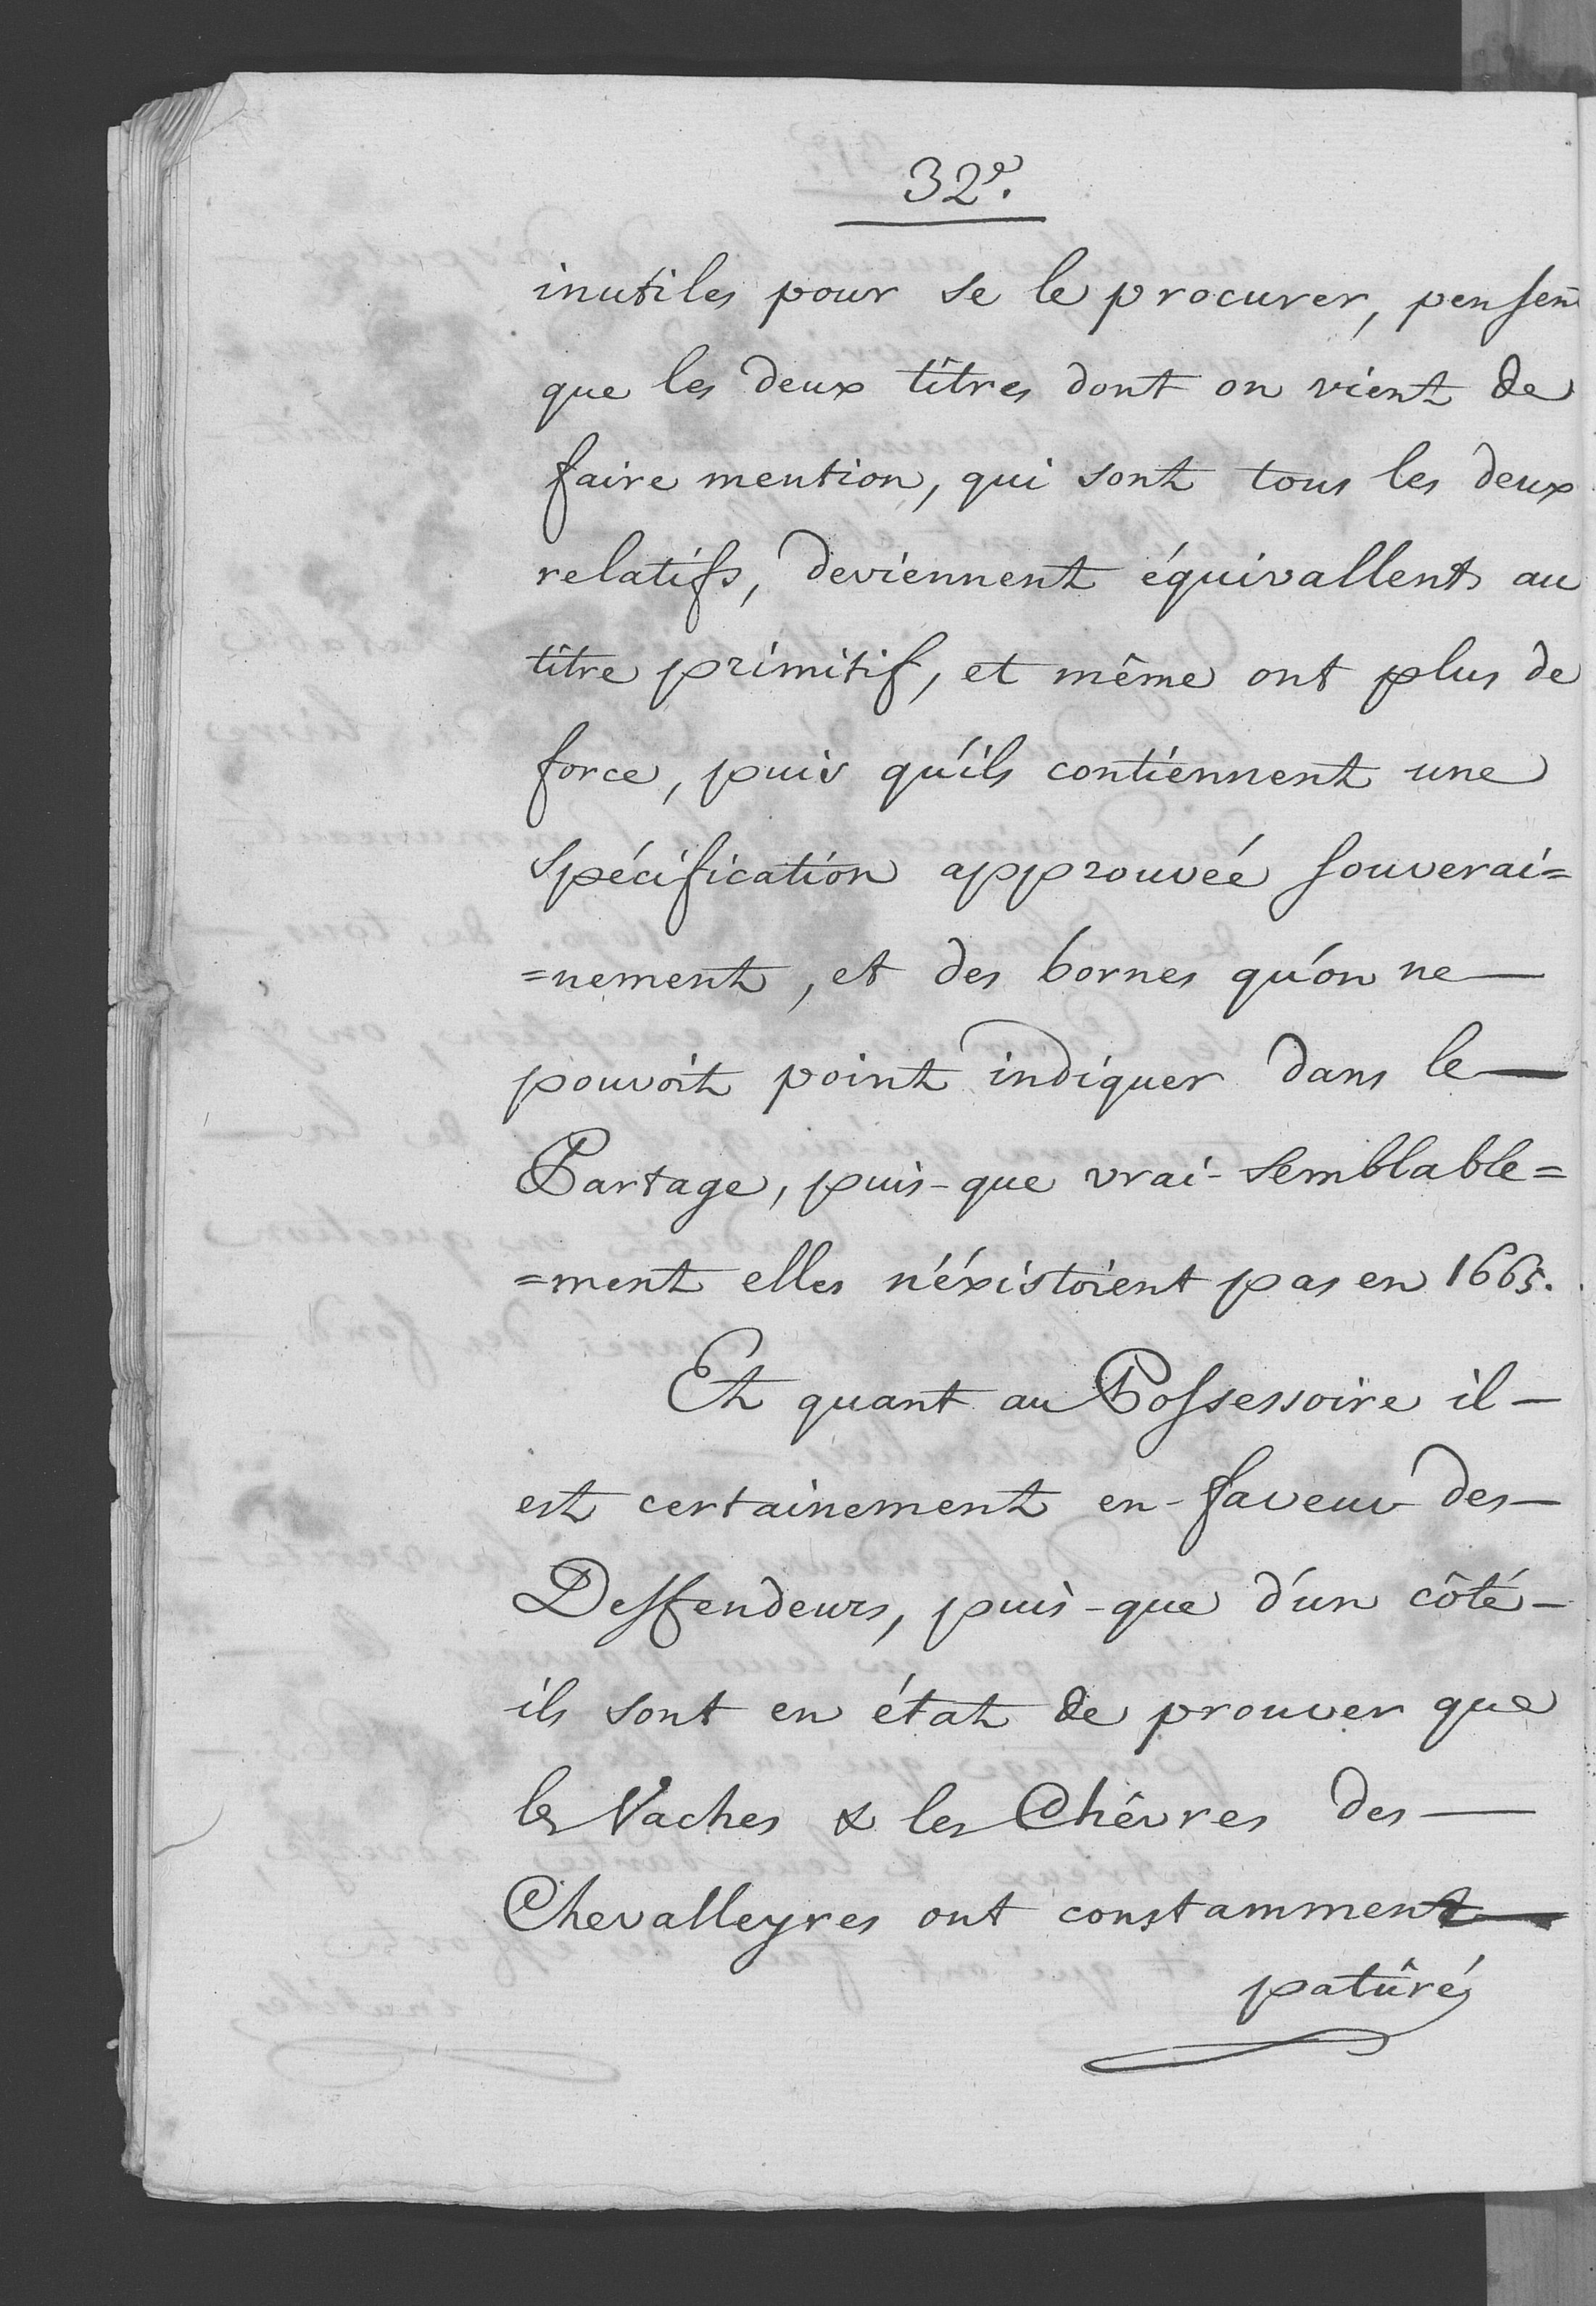 32e.
inutiles pour se le procurer, pensen
que les deux titres dont on vient de
faire mention, qui sont tous les deux
relatifs, deviennent équivallents au
titre primitif, et même ont plus de
force, puis qu'ils contiennent une
spécification approuvéé souverai=
=nement, et des bornes qu'on ne —
pouvoit point indiquer dans le —
Partage, puis-que vrai-semblable=
=ment elles n'éxistoient pas en 1665.
Et quant au Possessoire il —
est certainement en-faveur des —
Deffendeurs, puis-que d'un côté —
ils sont en état de prouver que
les Vaches & les Chêvres des —
Chevalleyres ont constamment —
patûré